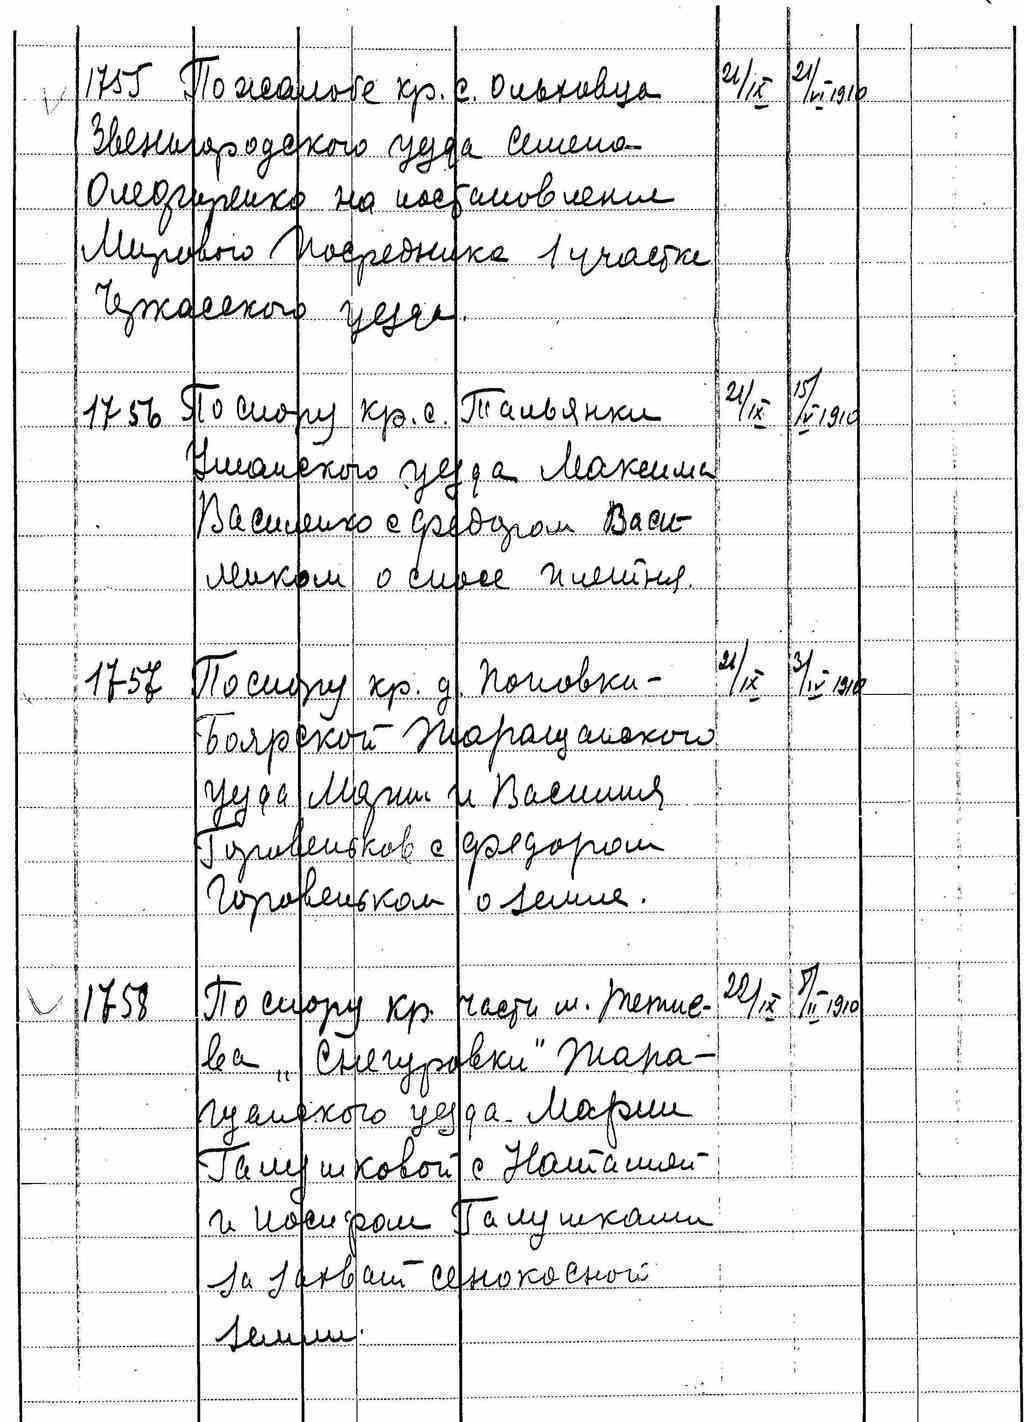 1755 По жалобе кр. с. Ольховца 21/IX 21/VI 1910
Звенигородского уезда Семена
на постановление
Мирового Посредника 1 участка
Черкасского уезда.
1756 По спору кр. с. Тальянки 21/IX 15/V 1910
Уманского уезда Максима
Василенко с Федором Васи-
ленком о сносе плетня.
1757 По спору кр. д. Поповки- 21/IX 3/IV 1910
Боярской Таращанского
уезда Марии и Василия
Горовеньков с Федором
Горовеньком о земле.
1758 По спору кр. части м. Тетие- 20/IX 8/II 1910
ва „Снегуровки" Тара-
щанского уезда Марии
Галушковой с Наталией
и Иосифом Галушками
за захват сенокосной
земли.